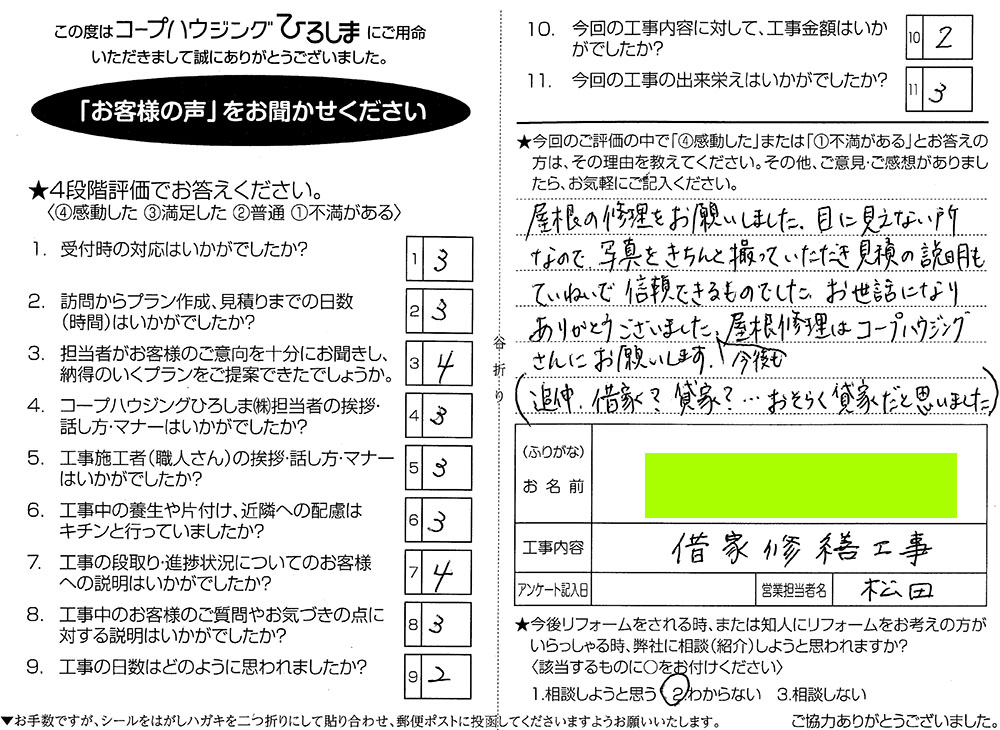 この度はコープハウジングひろしまにご用命
いただきまして誠にありがとうございました。
「お客様の声」をお聞かせください
★4段階評価でお答えください。
〈④感動した ③満足した ②普通 ①不満がある〉
1. 受付時の対応はいかがでしたか?
1 3
2. 訪問からプラン作成、見積りまでの日数
(時間)はいかがでしたか?
2 3
3. 担当者がお客様のご意向を十分にお聞きし、
納得のいくプランをご提案できたでしょうか。
3 4
4. コープハウジングひろしま㈱担当者の挨拶・
話し方・マナーはいかがでしたか?
4 3
5. 工事施工者(職人さん)の挨拶・話し方・マナー
はいかがでしたか?
5 3
6. 工事中の養生や片付け、近隣への配慮は
キチンと行っていましたか?
6 3
7. 工事の段取り・進捗状況についてのお客様
への説明はいかがでしたか?
7 4
8. 工事中のお客様のご質問やお気づきの点に
対する説明はいかがでしたか?
8 3
9. 工事の日数はどのように思われましたか?
9 2
谷折り
10. 今回の工事内容に対して、工事金額はいか
がでしたか?
10 2
11. 今回の工事の出来栄えはいかがでしたか?
11 3
★今回のご評価の中で「④感動した」または「①不満がある」とお答えの
方は、その理由を教えてください。その他、ご意見・ご感想がありまし
たら、お気軽にご記入ください。
屋根の修理をお願いしました。目に見えない所
なので、写真をきちんと撮っていただき見積の説明も
ていねいで信頼できるものでした。お世話になり
ありがとうございました。屋根修理はコープハウジング
さんにお願いします。今後も
(追伸、借家?貸家?…おそらく貸家だと思いました)
(ふりがな)
お名前
工事内容 借家修繕工事
アンケート記入日 営業担当者名 松田
★今後リフォームをされる時、または知人にリフォームをお考えの方が
いらっしゃる時、弊社に相談(紹介)しようと思われますか?
〈該当するものに○をお付けください〉
1.相談しようと思う 2.わからない 3.相談しない
▼お手数ですが、シールをはがしハガキを二つ折りにして貼り合わせ、郵便ポストに投函してくださいますようお願いいたします。
ご協力ありがとうございました。